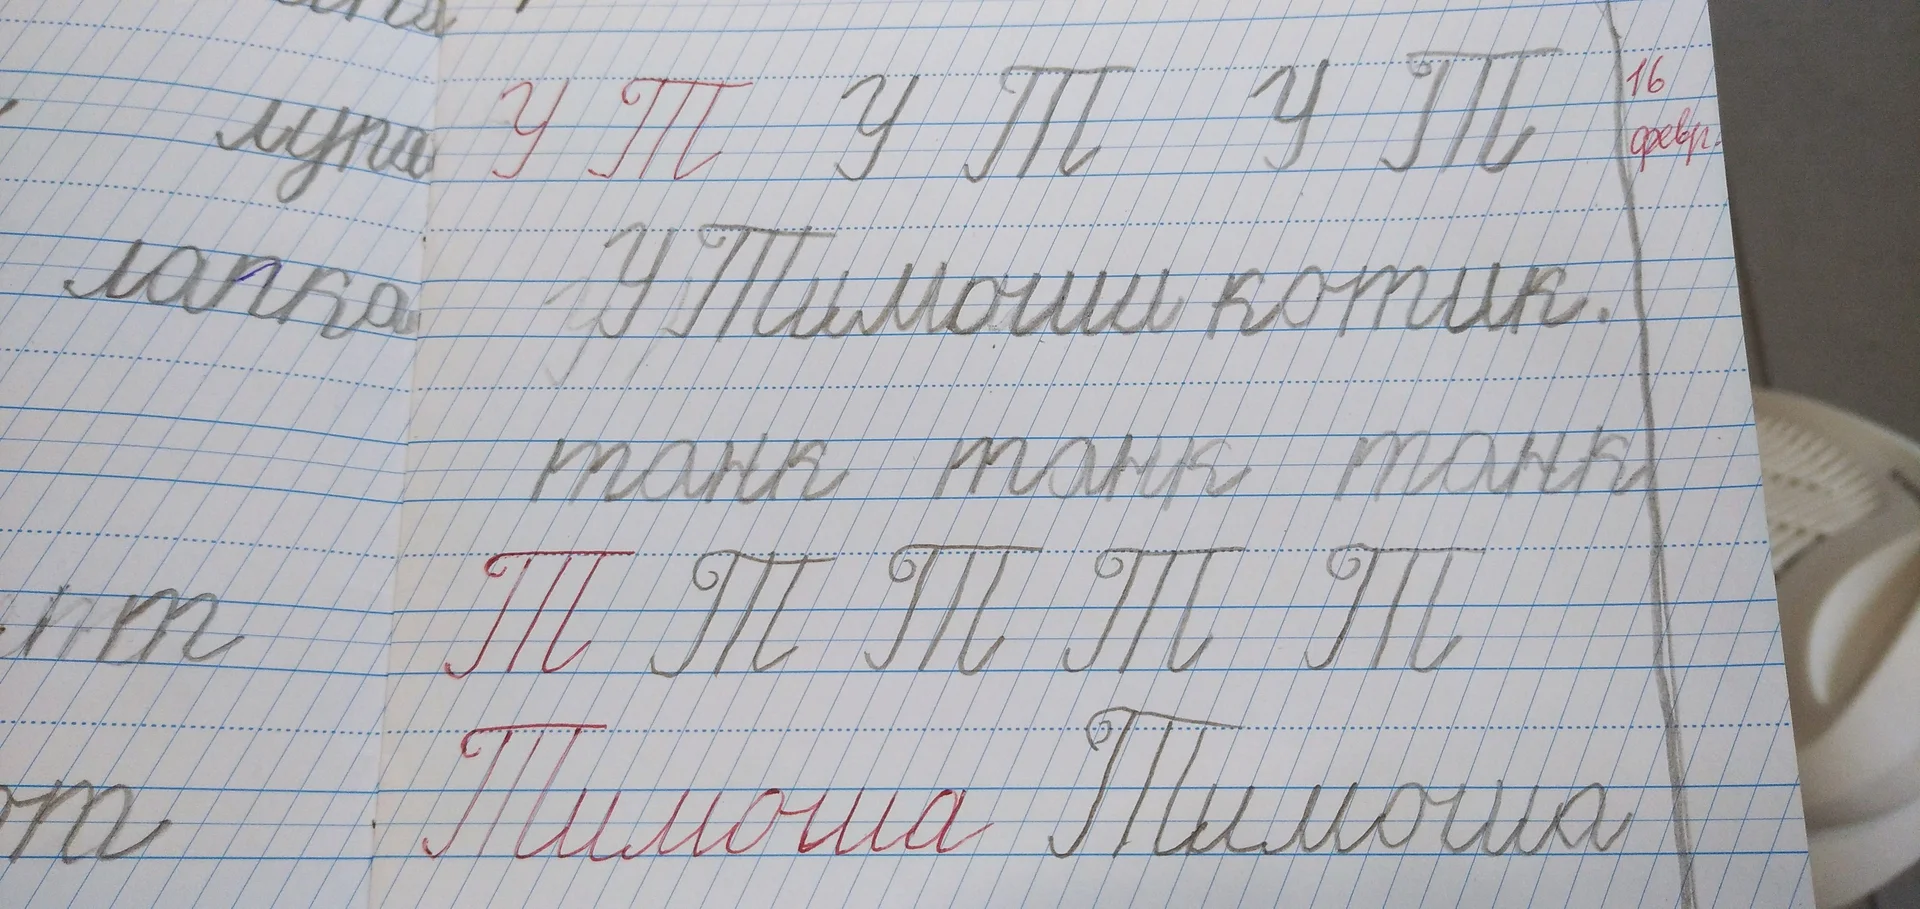 лупа
лапка
т
У Т У Т У Т
16
февр.
У Тимоши котик.
танк танк танк
Т Т Т Т Т
Тимоша Тимоша